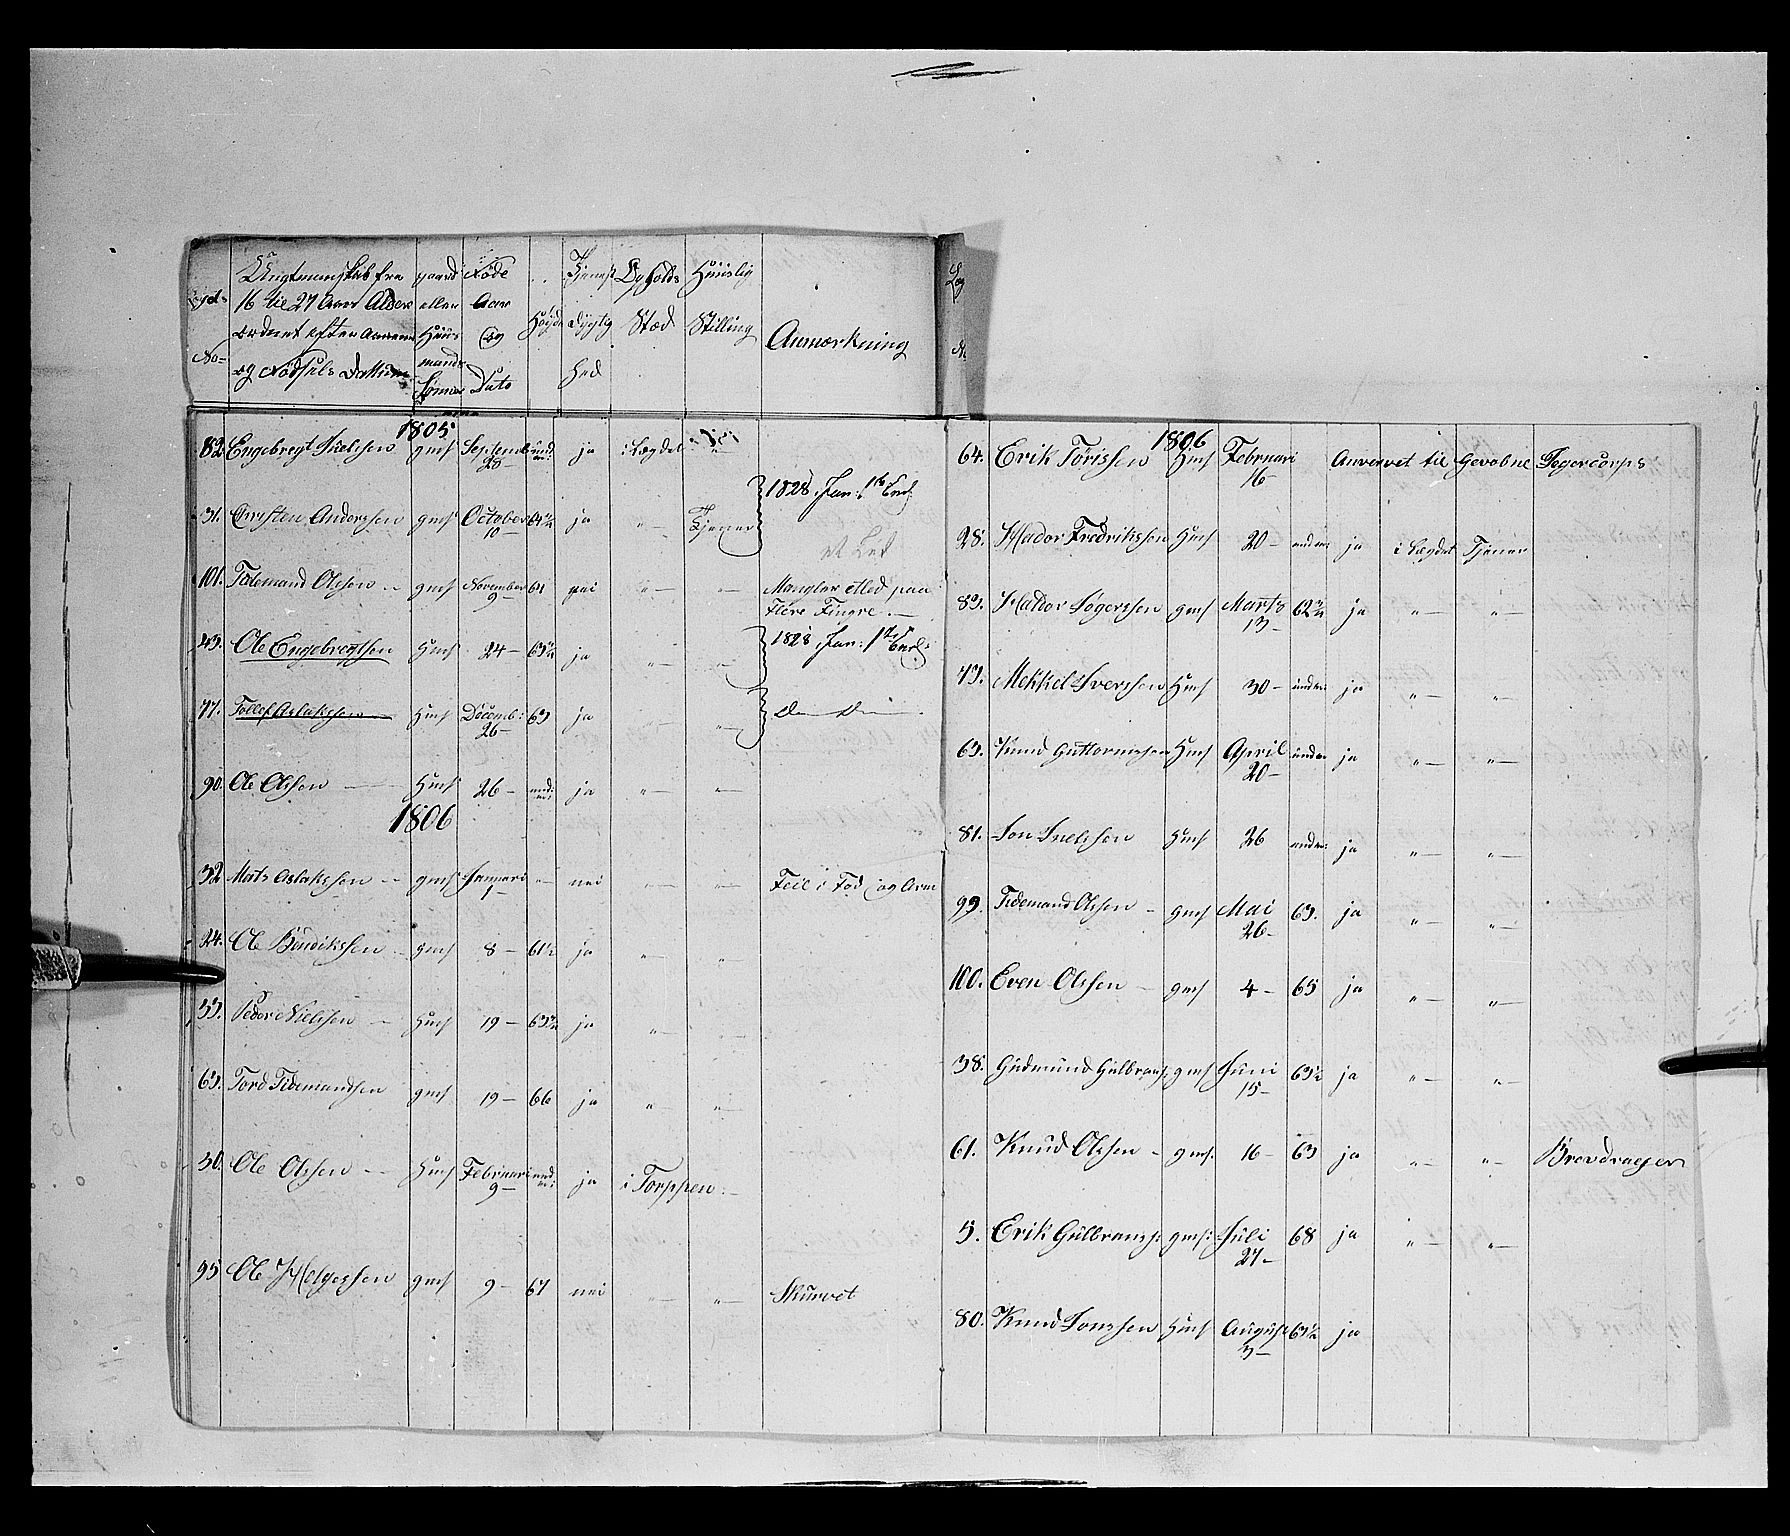 Lægds No=
Ungtmandskab fra
16 til 27 Aars Alder
ordnet efter Aarene
og Födsels Dattum
gaard
eller
Huus
mands
Sønner
Föde
Aar
og
Dato
Høyde
Tjenest
Dygtig
hed
Opholds
Stæd
Huuslig
Stilling
Anmærkning
1805
82 Engebregt Nielssen gms September 28 und: ja i Lægdet
31. Christen Anderssen gms October 10 64½ ja " Tjener 1828 Jan: 1ste
101. Tidemand Olssen gms November 9 61 nei " " Mangler et led paa
flere Fingre.
43. Ole Engebregtsen Hms 24 63¾ ja " " 1828 Jan: 1ste
77. Tollef Aslakssen Hms Decemb: 26 63 ja " D D
90. Ole Olssen Hms 26 und: ja " "
1806
32 Mats Aslakssen gms Januari 1 " nei " " Feil i Fod og Arm
24. Ole Bendikssen gms 8 61½ ja " "
33. Peder Nielssen Hms 19 63¾ ja "
63. Tord Tidemandsen gms 19 66 ja " "
30. Ole Olssen Hms Februari 9 und: ja i Torppen
95 Ole Helgessen gms 9 67 nei " " Skurvet
1806
64. Erik Törissen Hms Februari 16 Anvervet til Gevobne Jegercorps
28. Hador Fredrikssen Hms 20 under ja i Lægdet Tjener
89. Hador Segerssen gms Marts 13 62¾ ja " "
49. Mekkel Iverssen Hms 30 under ja " "
63. Knud Guttormssen Hms April 20 under ja " "
81. Jon Nielssen Hms 26 under ja " "
99. Tidemand Olssen gms Mai 26 63. ja " "
100. Even Olssen gms 4 65 ja " "
38. Gudmund Gulbrans: gms Juni 15 63½ ja " "
61. Knud Olssen gms. 16 63 ja " " Brevdrager
5. Erik Gulbranss: gms: Juli 27 68 ja " "
80. Knud Jonssen Hms August 3 63½ ja